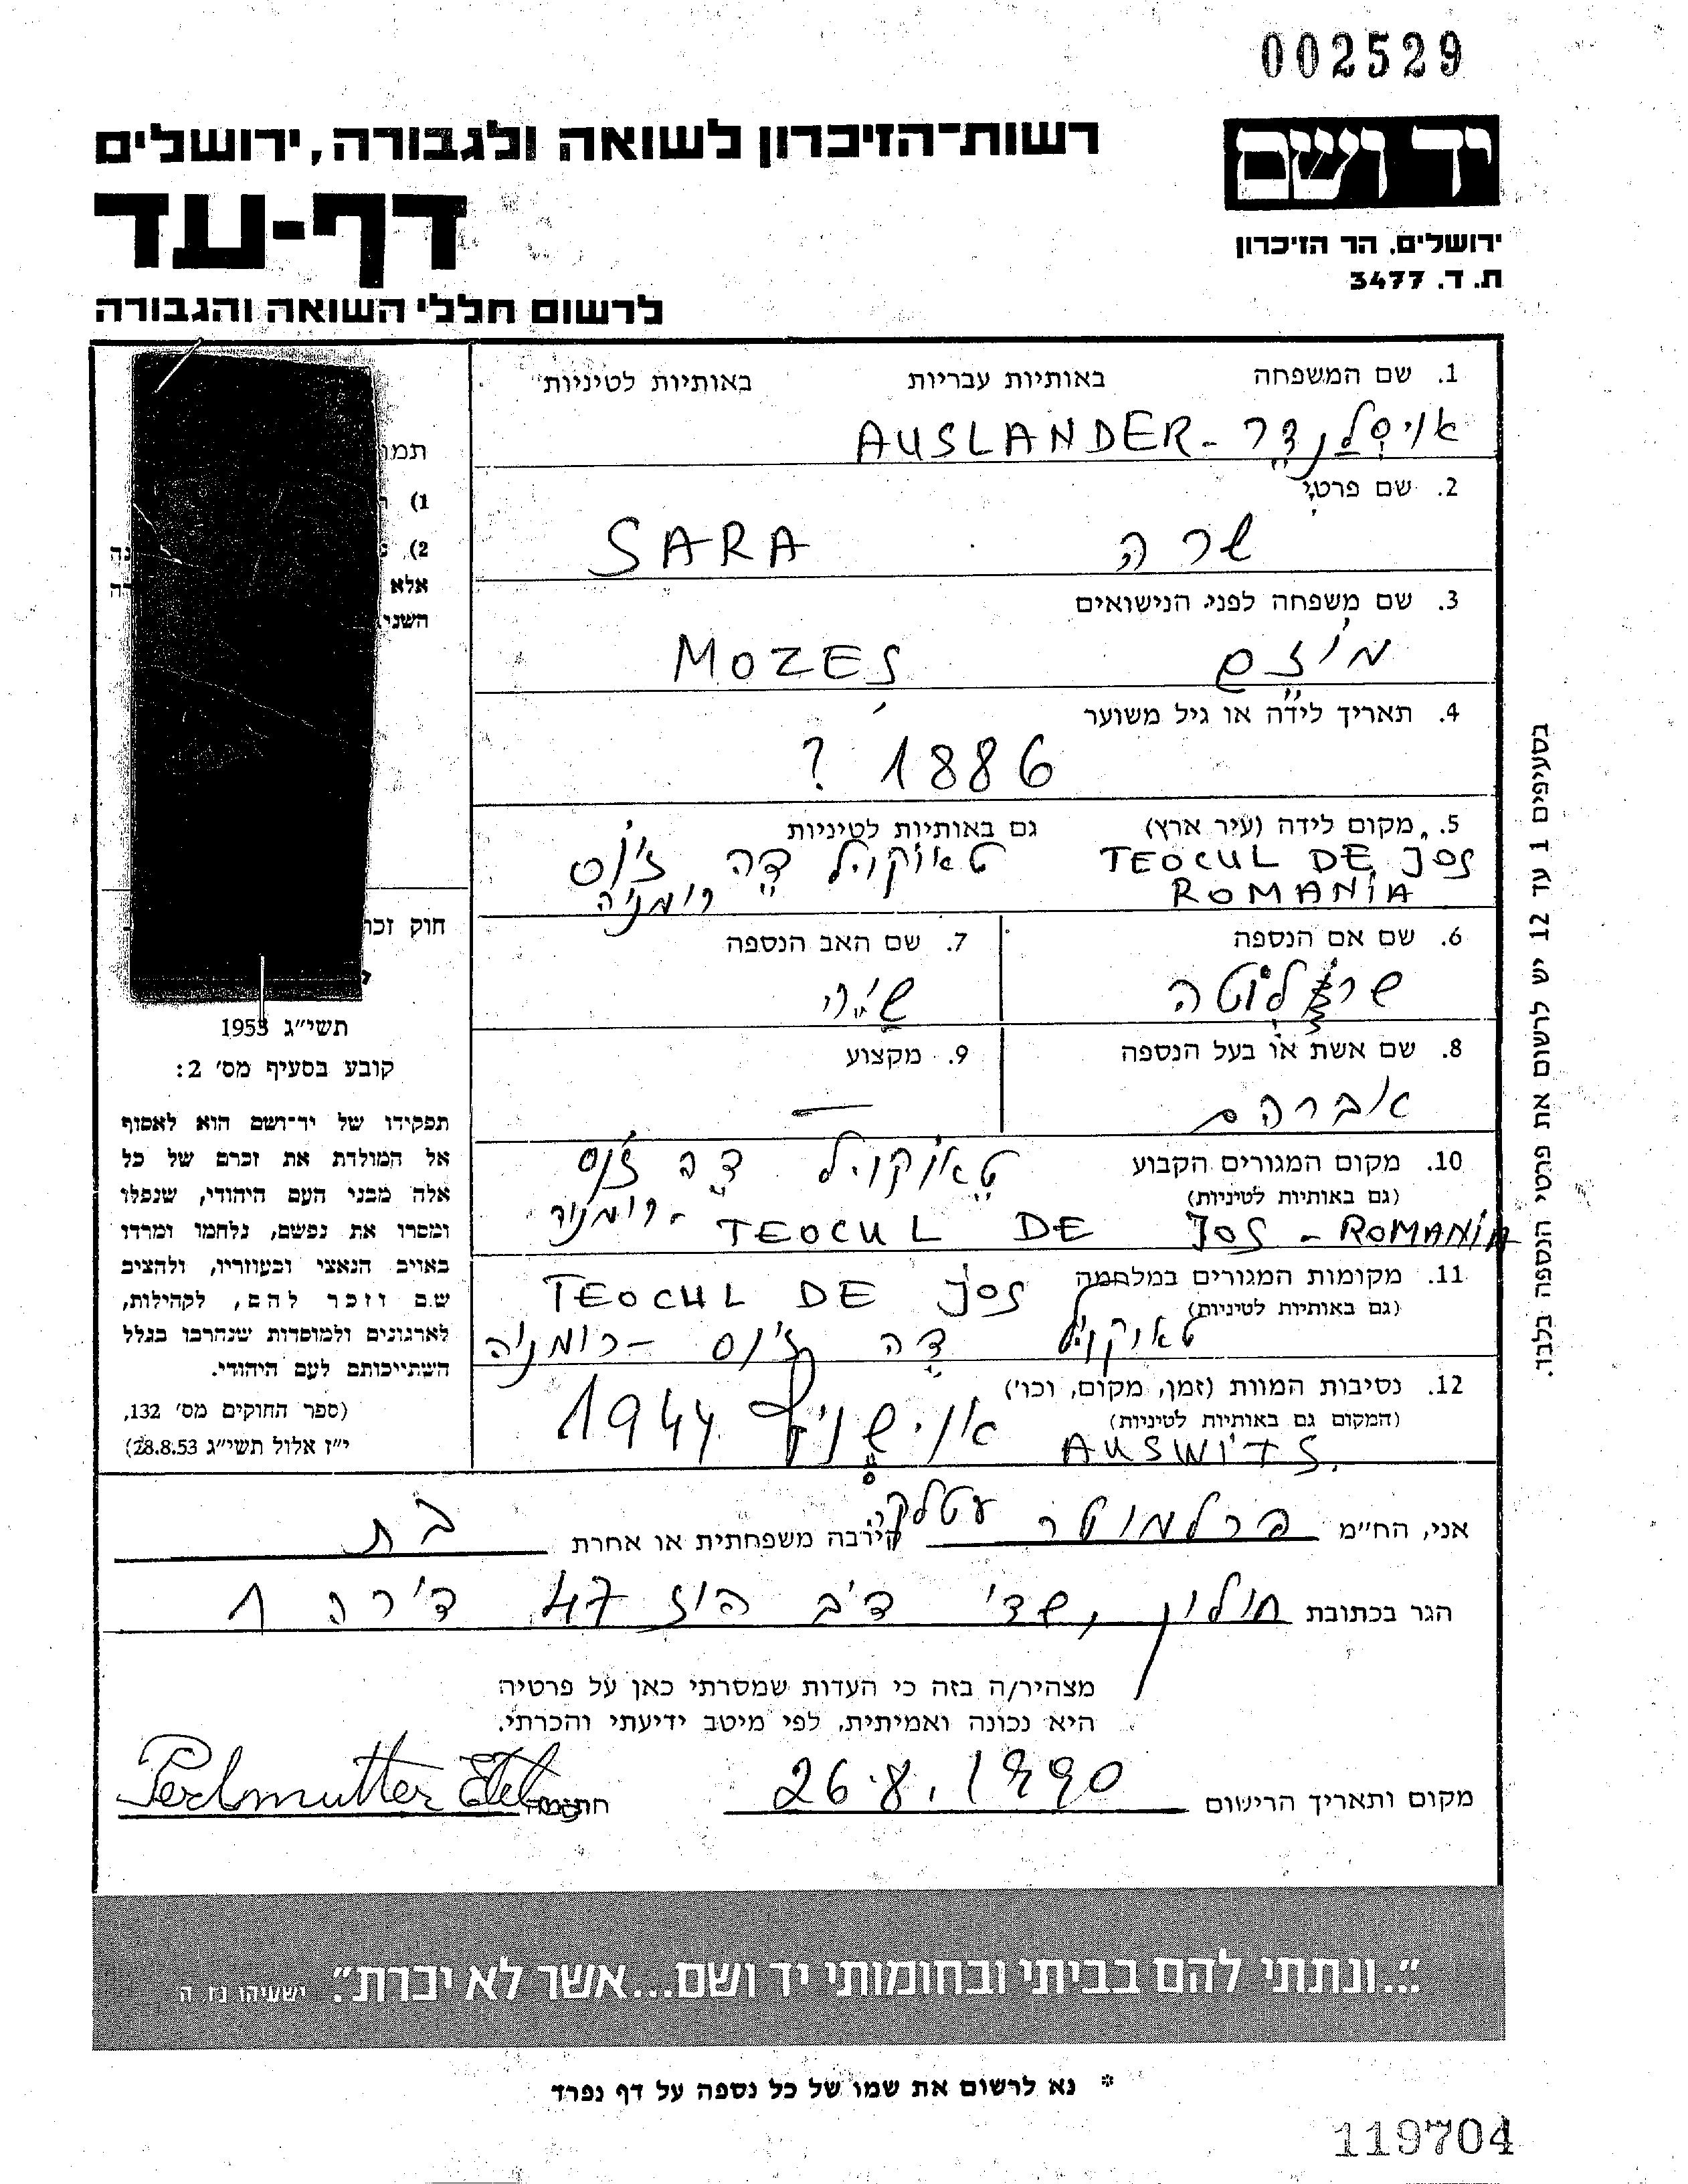 002529
רשות-הזיכרון לשואה ולגבורה, ירושלים
יד ושם
דף-עד
ירושלים, הר הזיכרון
ת. ד. 3477
לרשום חללי השואה והגבורה
1. שם המשפחה באותיות עבריות באותיות לטיניות
אויסלנדר - AUSLANDER
2. שם פרטי
שרה SARA
3. שם משפחה לפני הנישואים
מוזס MOZES
4. תאריך לידה או גיל משוער
1886 ?
5. מקום לידה (עיר ארץ) גם באותיות לטיניות
TEOCUL DE JOS טאוקויל דה ז'וס
ROMANIA רומניה
6. שם אם הנספה
שרלוטה
7. שם האב הנספה
8. שם אשת או בעל הנספה
אברהם
9. מקצוע
—
10. מקום המגורים הקבוע
(גם באותיות לטיניות)
טאוקויל דה ז'וס
TEOCUL DE JOS - ROMANIA
11. מקומות המגורים במלחמה
(גם באותיות לטיניות)
TEOCUL DE JOS
טאוקויל דה ז'וס - רומניה
12. נסיבות המוות (זמן, מקום, וכו')
(המקום גם באותיות לטיניות)
1944
AUSWITS
תמו
1)
2)
אלא
השני
חוק זכר
תשי"ג 1953
קובע בסעיף מס' 2:
תפקידו של יד-ושם הוא לאסוף
אל המולדת את זכרם של כל
אלה מבני העם היהודי, שנפלו
ומסרו את נפשם, נלחמו ומרדו
באויב הנאצי ובעוזריו, ולהציב
שם וזכר להם, לקהילות,
לארגונים ולמוסדות שנהרבו בגלל
השתייכותם לעם היהודי.
(ספר החוקים מס' 132,
י"ז אלול תשי"ג 28.8.53)
בסעיפים 1 עד 12 יש לרשום את פרטי הנספה בלבד.
אני, הח"מ פרלמוטר עטלקה קירבה משפחתית או אחרת בת
הגר בכתובת חולון, שד' דב הוז 47 דירה 1
מצהיר/ה בזה כי העדות שמסרתי כאן על פרטיה
היא נכונה ואמיתית, לפי מיטב ידיעתי והכרתי.
מקום ותאריך הרישום 26.8.1990 חתימה Perlmutter Etel
"...ונתתי להם בביתי ובחומותי יד ושם...אשר לא יכרת". ישעיהו נו, ה
* נא לרשום את שמו של כל נספה על דף נפרד
119704